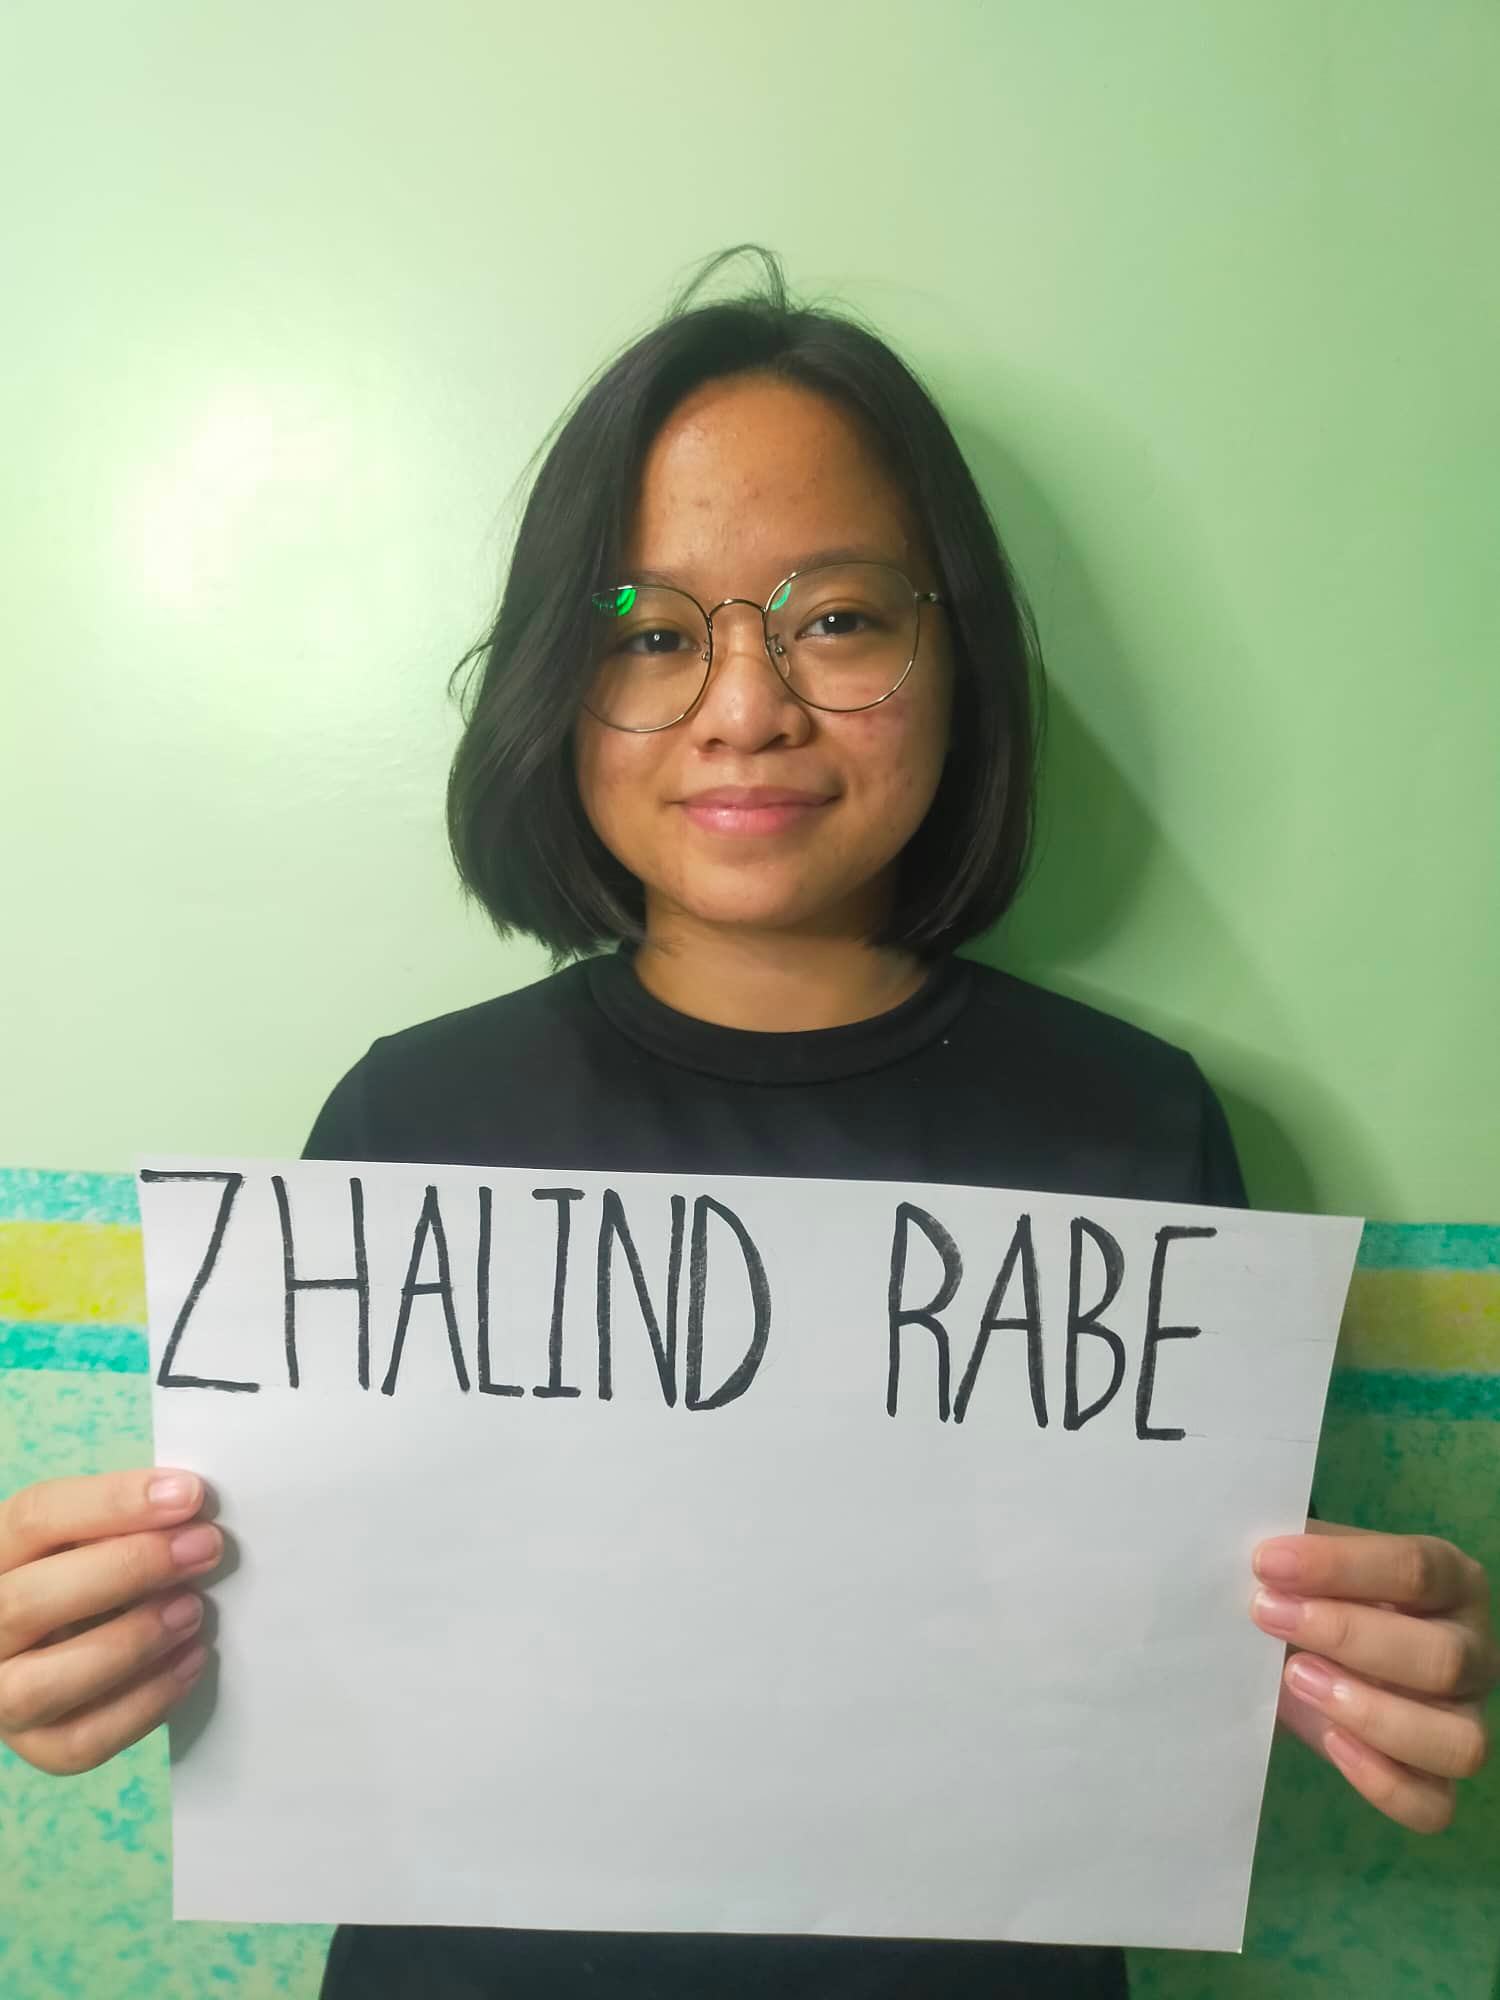 ZHALIND RABE